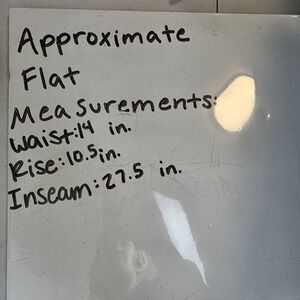 Approximate
Flat
Measurements:
Waist:14 in.
Rise:10.5in.
Inseam:27.5 in.